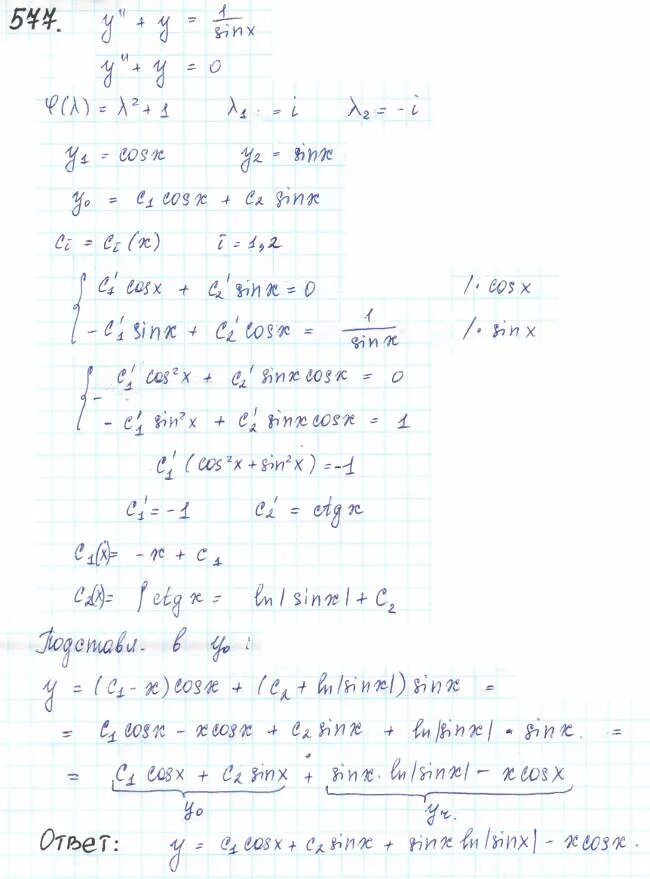 577. y'' + y = 1/sinx
y'' + y = 0
φ(λ) = λ² + 1 λ₁ = i λ₂ = -i
y₁ = cosx y₂ = sinx
y₀ = C₁ cosx + C₂ sinx
Cᵢ = Cᵢ(x) i = 1,2
{ C₁' cosx + C₂' sinx = 0 /· cosx
- C₁' sinx + C₂' cosx = 1/sinx /· sinx
{ - C₁' cos²x + C₂' sinx cosx = 0
- C₁' sin²x + C₂' sinx cosx = 1
C₁' (cos²x + sin²x) = -1
C₁' = -1 C₂' = ctgx
C₁(x) = -x + C₁
C₂(x) = ∫ctgx = ln|sinx| + C₂
Подставл. в y₀:
y = (C₁ - x)cosx + (C₂ + ln|sinx|) sinx =
= C₁ cosx - xcosx + C₂ sinx + ln|sinx| · sinx =
= C₁ cosx + C₂ sinx + sinx · ln|sinx| - xcosx
y₀ yч.
Ответ: y = C₁cosx + C₂sinx + sinx ln|sinx| - xcosx.